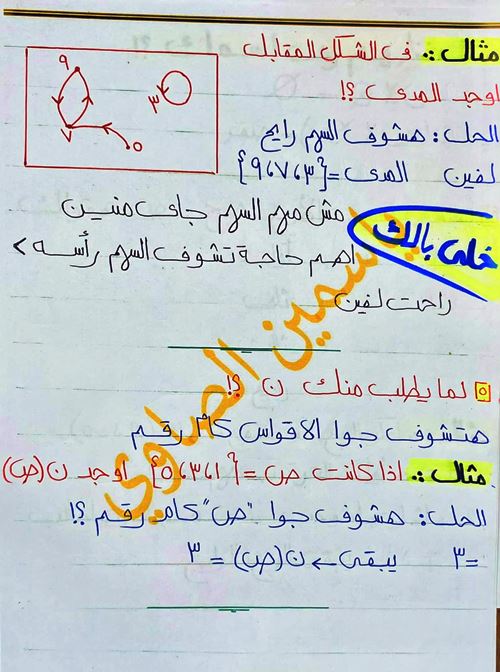 مثال :- في الشكل المقابل
اوجد المدى ؟!
٩
٣
٧
٥
الحل : هشوف السهم رايح
لفين المدى = {٣،٧،٩}
مش مهم السهم جاى منين
خلى بالك
اهم حاجة تشوف السهم رأسه >
راحت لفين
ياسمين الصاوي
٥ لما يطلب منك ن ؟!
هتشوف جوا الاقواس كام رقم
مثال :- اذا كانت ص = {١،٣،٥} اوجد ن(ص)
الحل : هشوف جوا "ص" كام رقم ؟!
=٣ يبقى ← ن(ص) = ٣